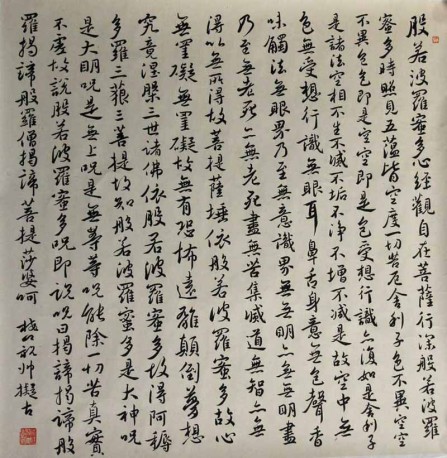 般若波羅蜜多心經觀自在菩薩行深般若波羅
蜜多時照見五蘊皆空度一切苦厄舍利子色不異空空
不異色色即是空空即是色受想行識亦復如是舍利子
是諸法空相不生不滅不垢不淨不增不減是故空中無
色無受想行識無眼耳鼻舌身意無色聲香
味觸法無眼界乃至無意識界無無明亦無無明盡
乃至無老死亦無老死盡無苦集滅道無智亦無
得以無所得故菩提薩埵依般若波羅蜜多故心
無罣礙無罣礙故無有恐怖遠離顛倒夢想
究竟涅槃三世諸佛依般若波羅蜜多故得阿耨
多羅三藐三菩提故知般若波羅蜜多是大神呪
是大明呪是無上呪是無等等呪能除一切苦真實
不虛故說般若波羅蜜多呪即說呪曰揭諦揭諦般
羅揭諦般羅僧揭諦菩提莎婆呵 擬古